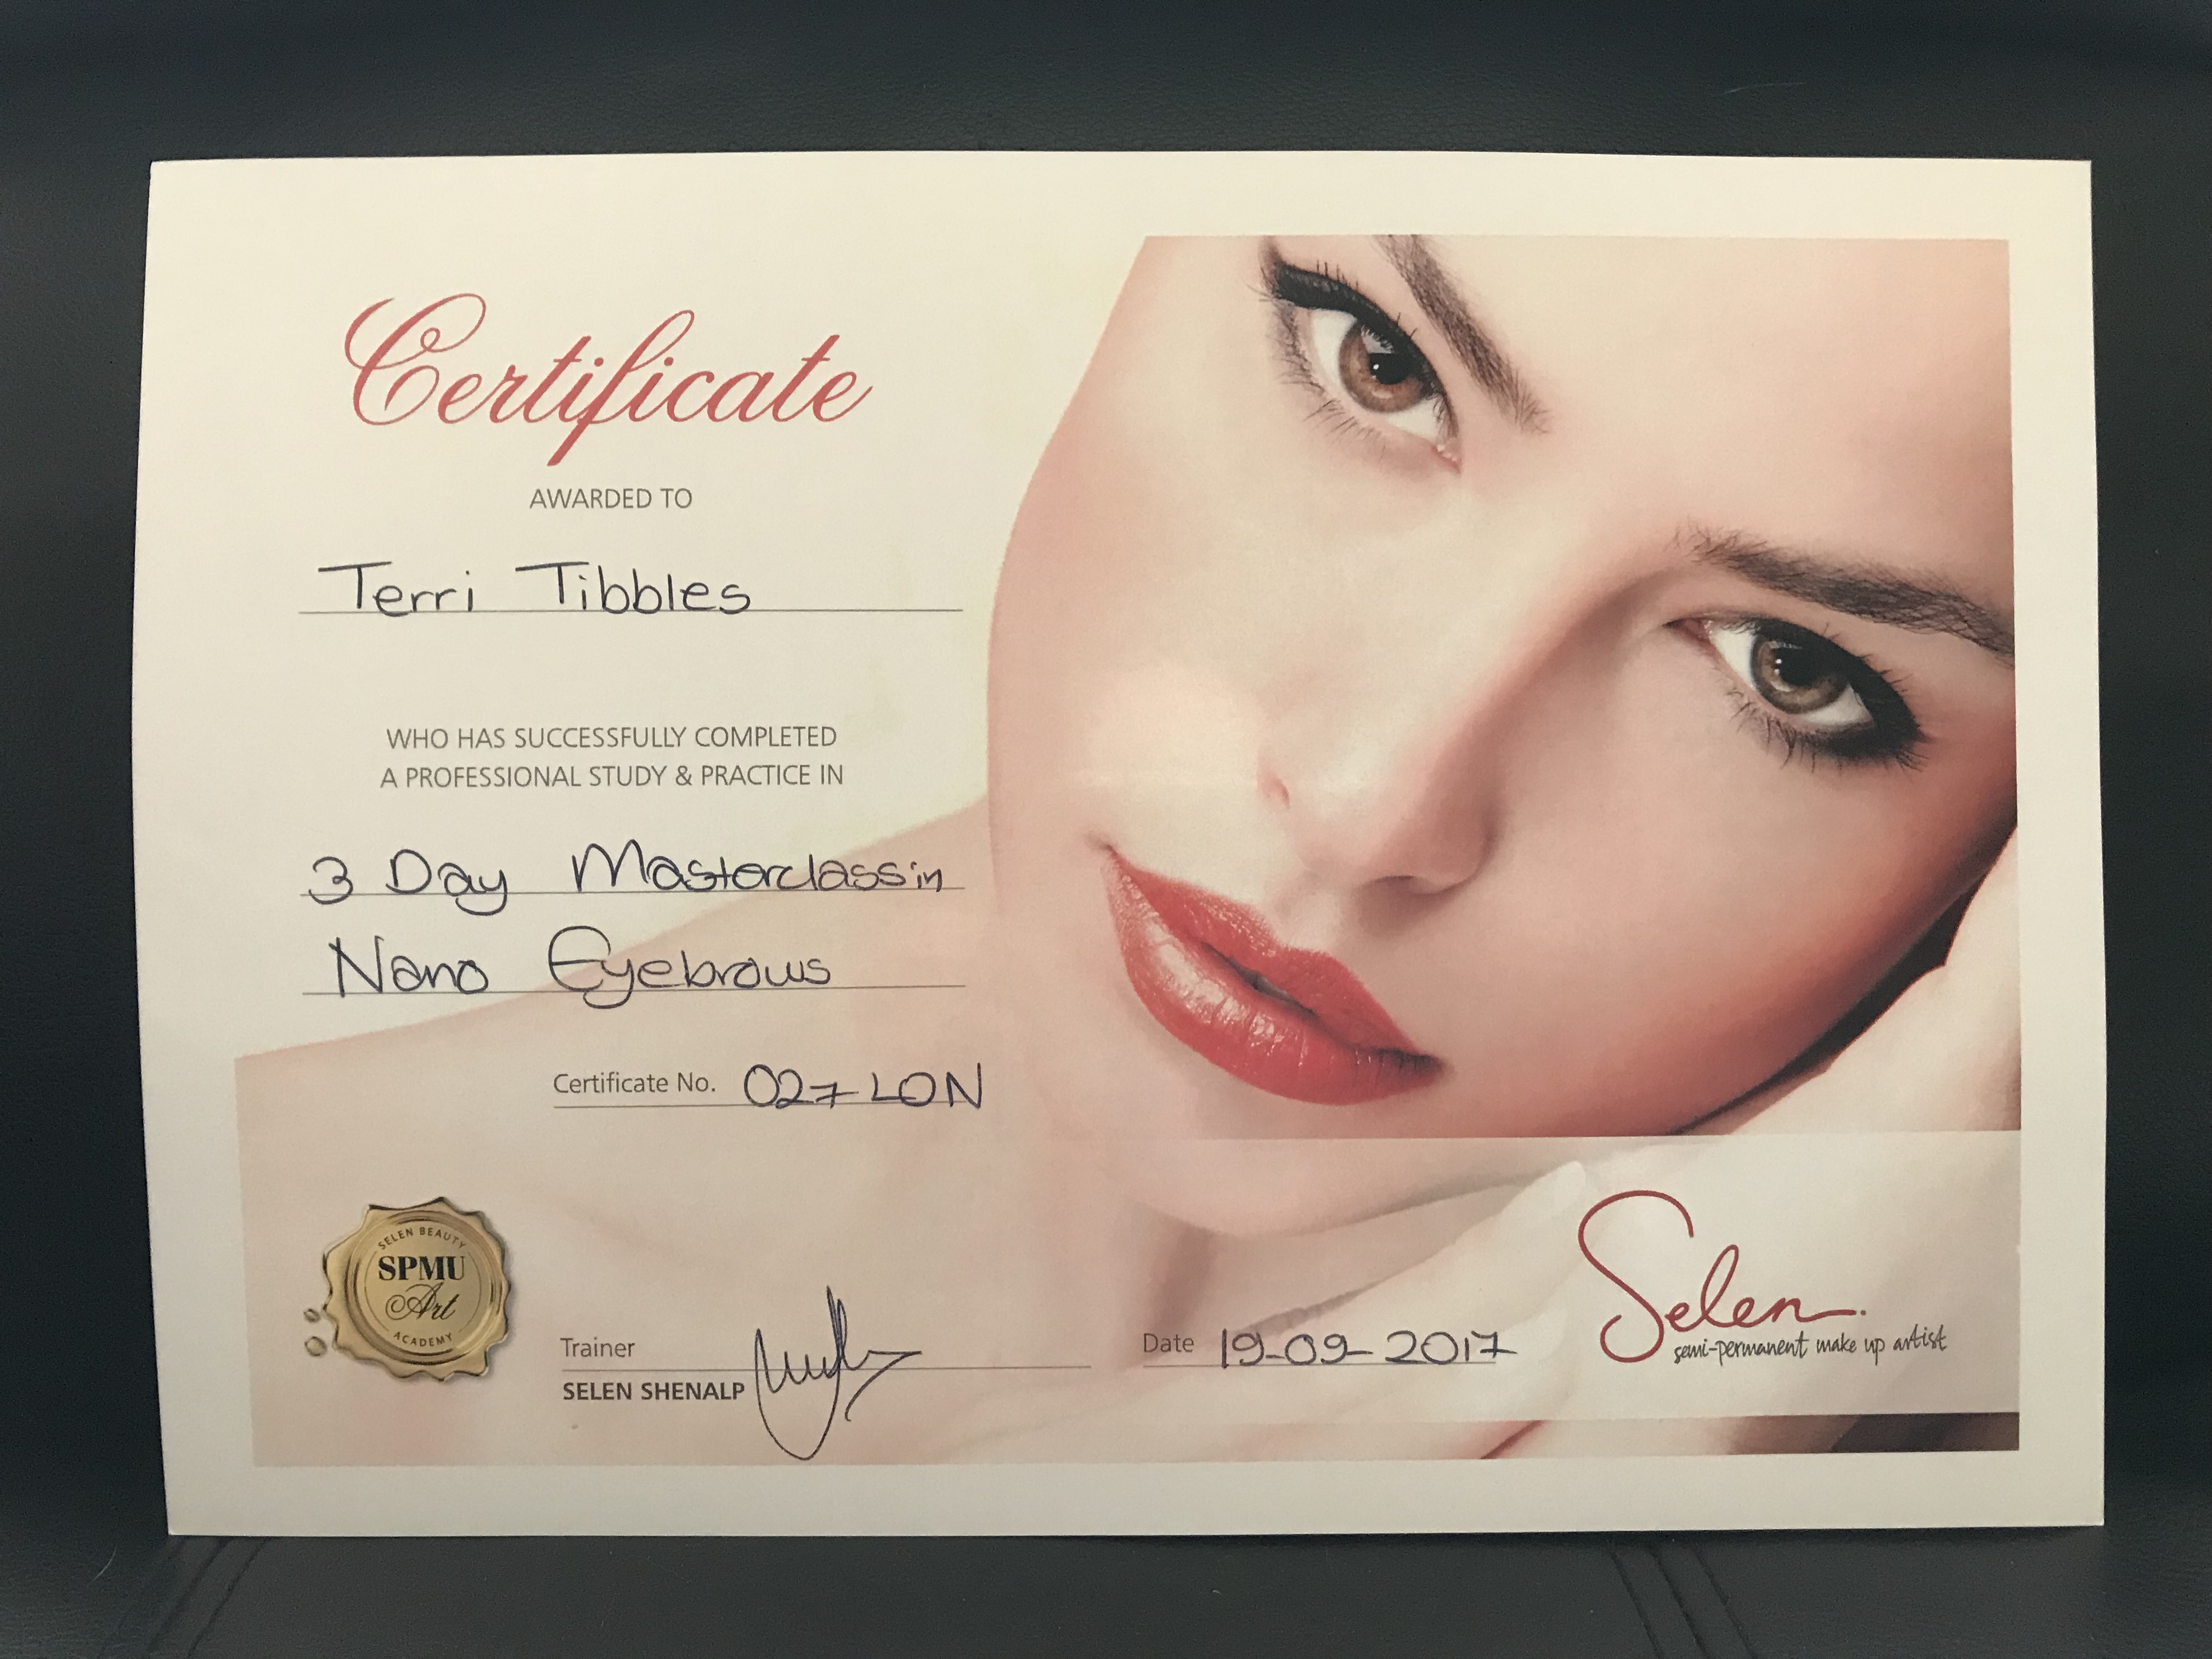 Certificate
AWARDED TO
Terri Tibbles
WHO HAS SUCCESSFULLY COMPLETED
A PROFESSIONAL STUDY & PRACTICE IN
3 Day Masterclass in
Nano Eyebrows
Certificate No. 027 LON
SELEN BEAUTY
SPMU
Art
ACADEMY
Trainer
SELEN SHENALP
Date 19-09-2017
Selen
semi-permanent make up artist